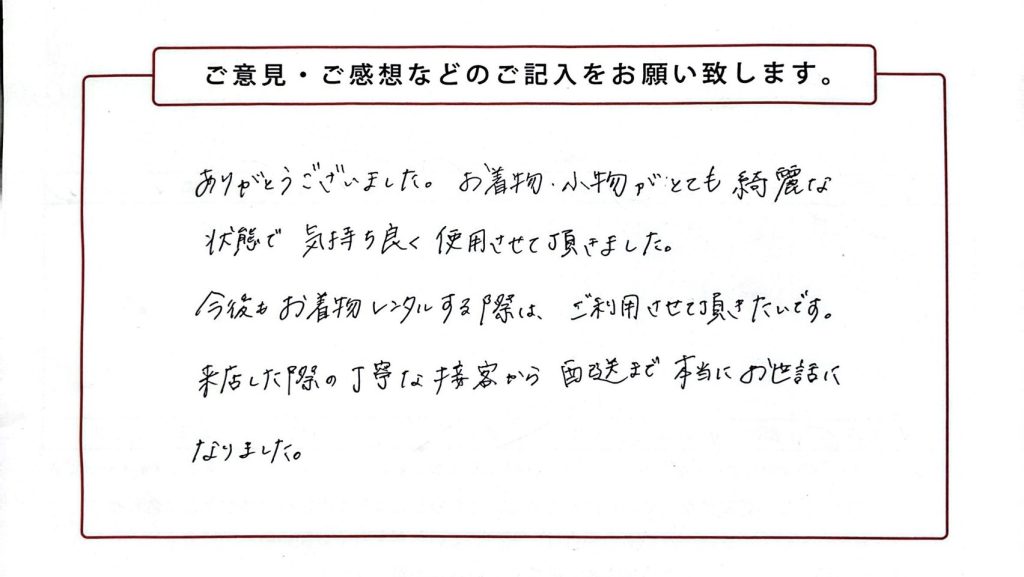 ご意見・ご感想などのご記入をお願い致します。
ありがとうございました。お着物・小物がとても綺麗な
状態で気持ち良く使用させて頂きました。
今後もお着物レンタルする際は、ご利用させて頂きたいです。
来店した際の丁寧な接客から配送まで本当にお世話に
なりました。